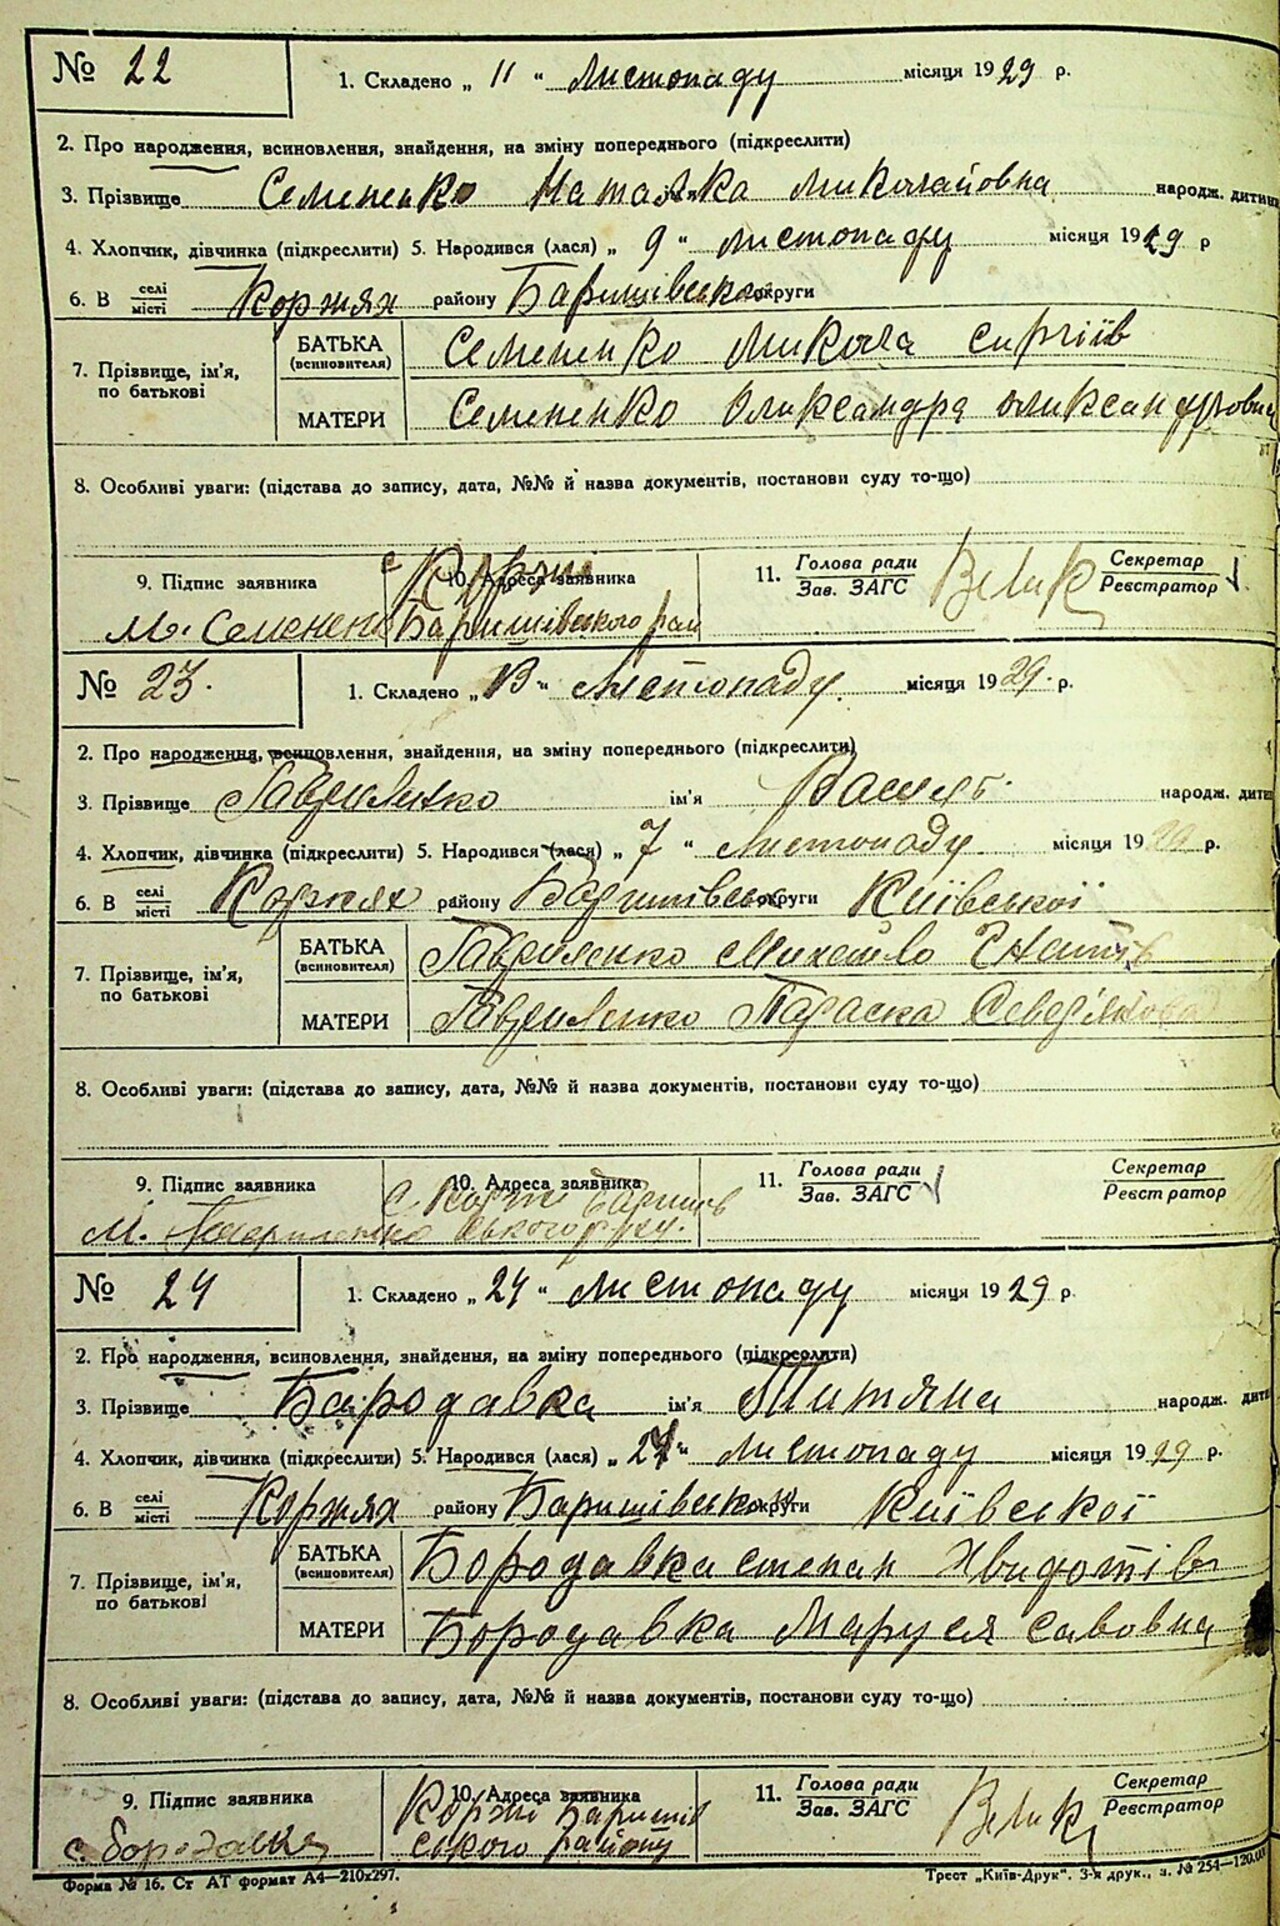 № 22
1. Складено „ 11 “ Листопаду місяця 1929 р.
2. Про народження, всиновлення, знайдення, на зміну попереднього (підкреслити)
3. Прізвище Семененко Наталка Миколайовна народж. дитини
4. Хлопчик, дівчинка (підкреслити) 5. Народився (лася) „ 9 “ листопаду місяця 1929 р
6. В селі місті Коржях району Баришівської округи
7. Прізвище, ім’я, по батькові
БАТЬКА (всиновителя) Семененко Микола Сиргіів
МАТЕРИ Семененко Олександра Олександровна
8. Особливі уваги: (підстава до запису, дата, №№ й назва документів, постанови суду то-що)
9. Підпис заявника
М. Семененко
10. Адреса заявника
с Коржі
Баришівського рай
11. Голова ради Зав. ЗАГС Велик Секретар Реєстратор
№ 23.
1. Складено „ 13 “ листопаду. місяця 1929. р.
2. Про народження, всиновлення, знайдення, на зміну попереднього (підкреслити)
3. Прізвище Гавриленко ім’я Василь. народж. дити
4. Хлопчик, дівчинка (підкреслити) 5. Народився (лася) „ 7 “ Листопаду місяця 1929 р.
6. В селі місті Коржях району Баришівської округи Київської
7. Прізвище, ім’я, по батькові
БАТЬКА (всиновителя) Гавриленко Михайло Гнатів
МАТЕРИ Гавриленко Параска Север’янова
8. Особливі уваги: (підстава до запису, дата, №№ й назва документів, постанови суду то-що)
9. Підпис заявника
М. Гавриленко
10. Адреса заявника
с. Коржі Баришів
ського рай.
11. Голова ради Зав. ЗАГС Секретар Реєстратор
№ 24
1. Складено „ 24 “ Листопаду місяця 1929 р.
2. Про народження, всиновлення, знайдення, на зміну попереднього (підкреслити)
3. Прізвище Бародавка ім’я Титяна народж. дити
4. Хлопчик, дівчинка (підкреслити) 5. Народився (лася) „ “ Листопаду місяця 1929 р.
6. В селі місті Коржях району Баришівської округи Київської
7. Прізвище, ім’я, по батькові
БАТЬКА (всиновителя) Бородавка степан Хвидотів
МАТЕРИ Бородавка Маруся Савовна
8. Особливі уваги: (підстава до запису, дата, №№ й назва документів, постанови суду то-що)
9. Підпис заявника
с. бородавка
10. Адреса заявника
Коржі Баришів
ського району
11. Голова ради Зав. ЗАГС Велик Секретар Реєстратор
Форма № 16. Ст АТ формат А4—210х297.
Трест „Київ-Друк“. 3-я друк., з. № 254—120.00